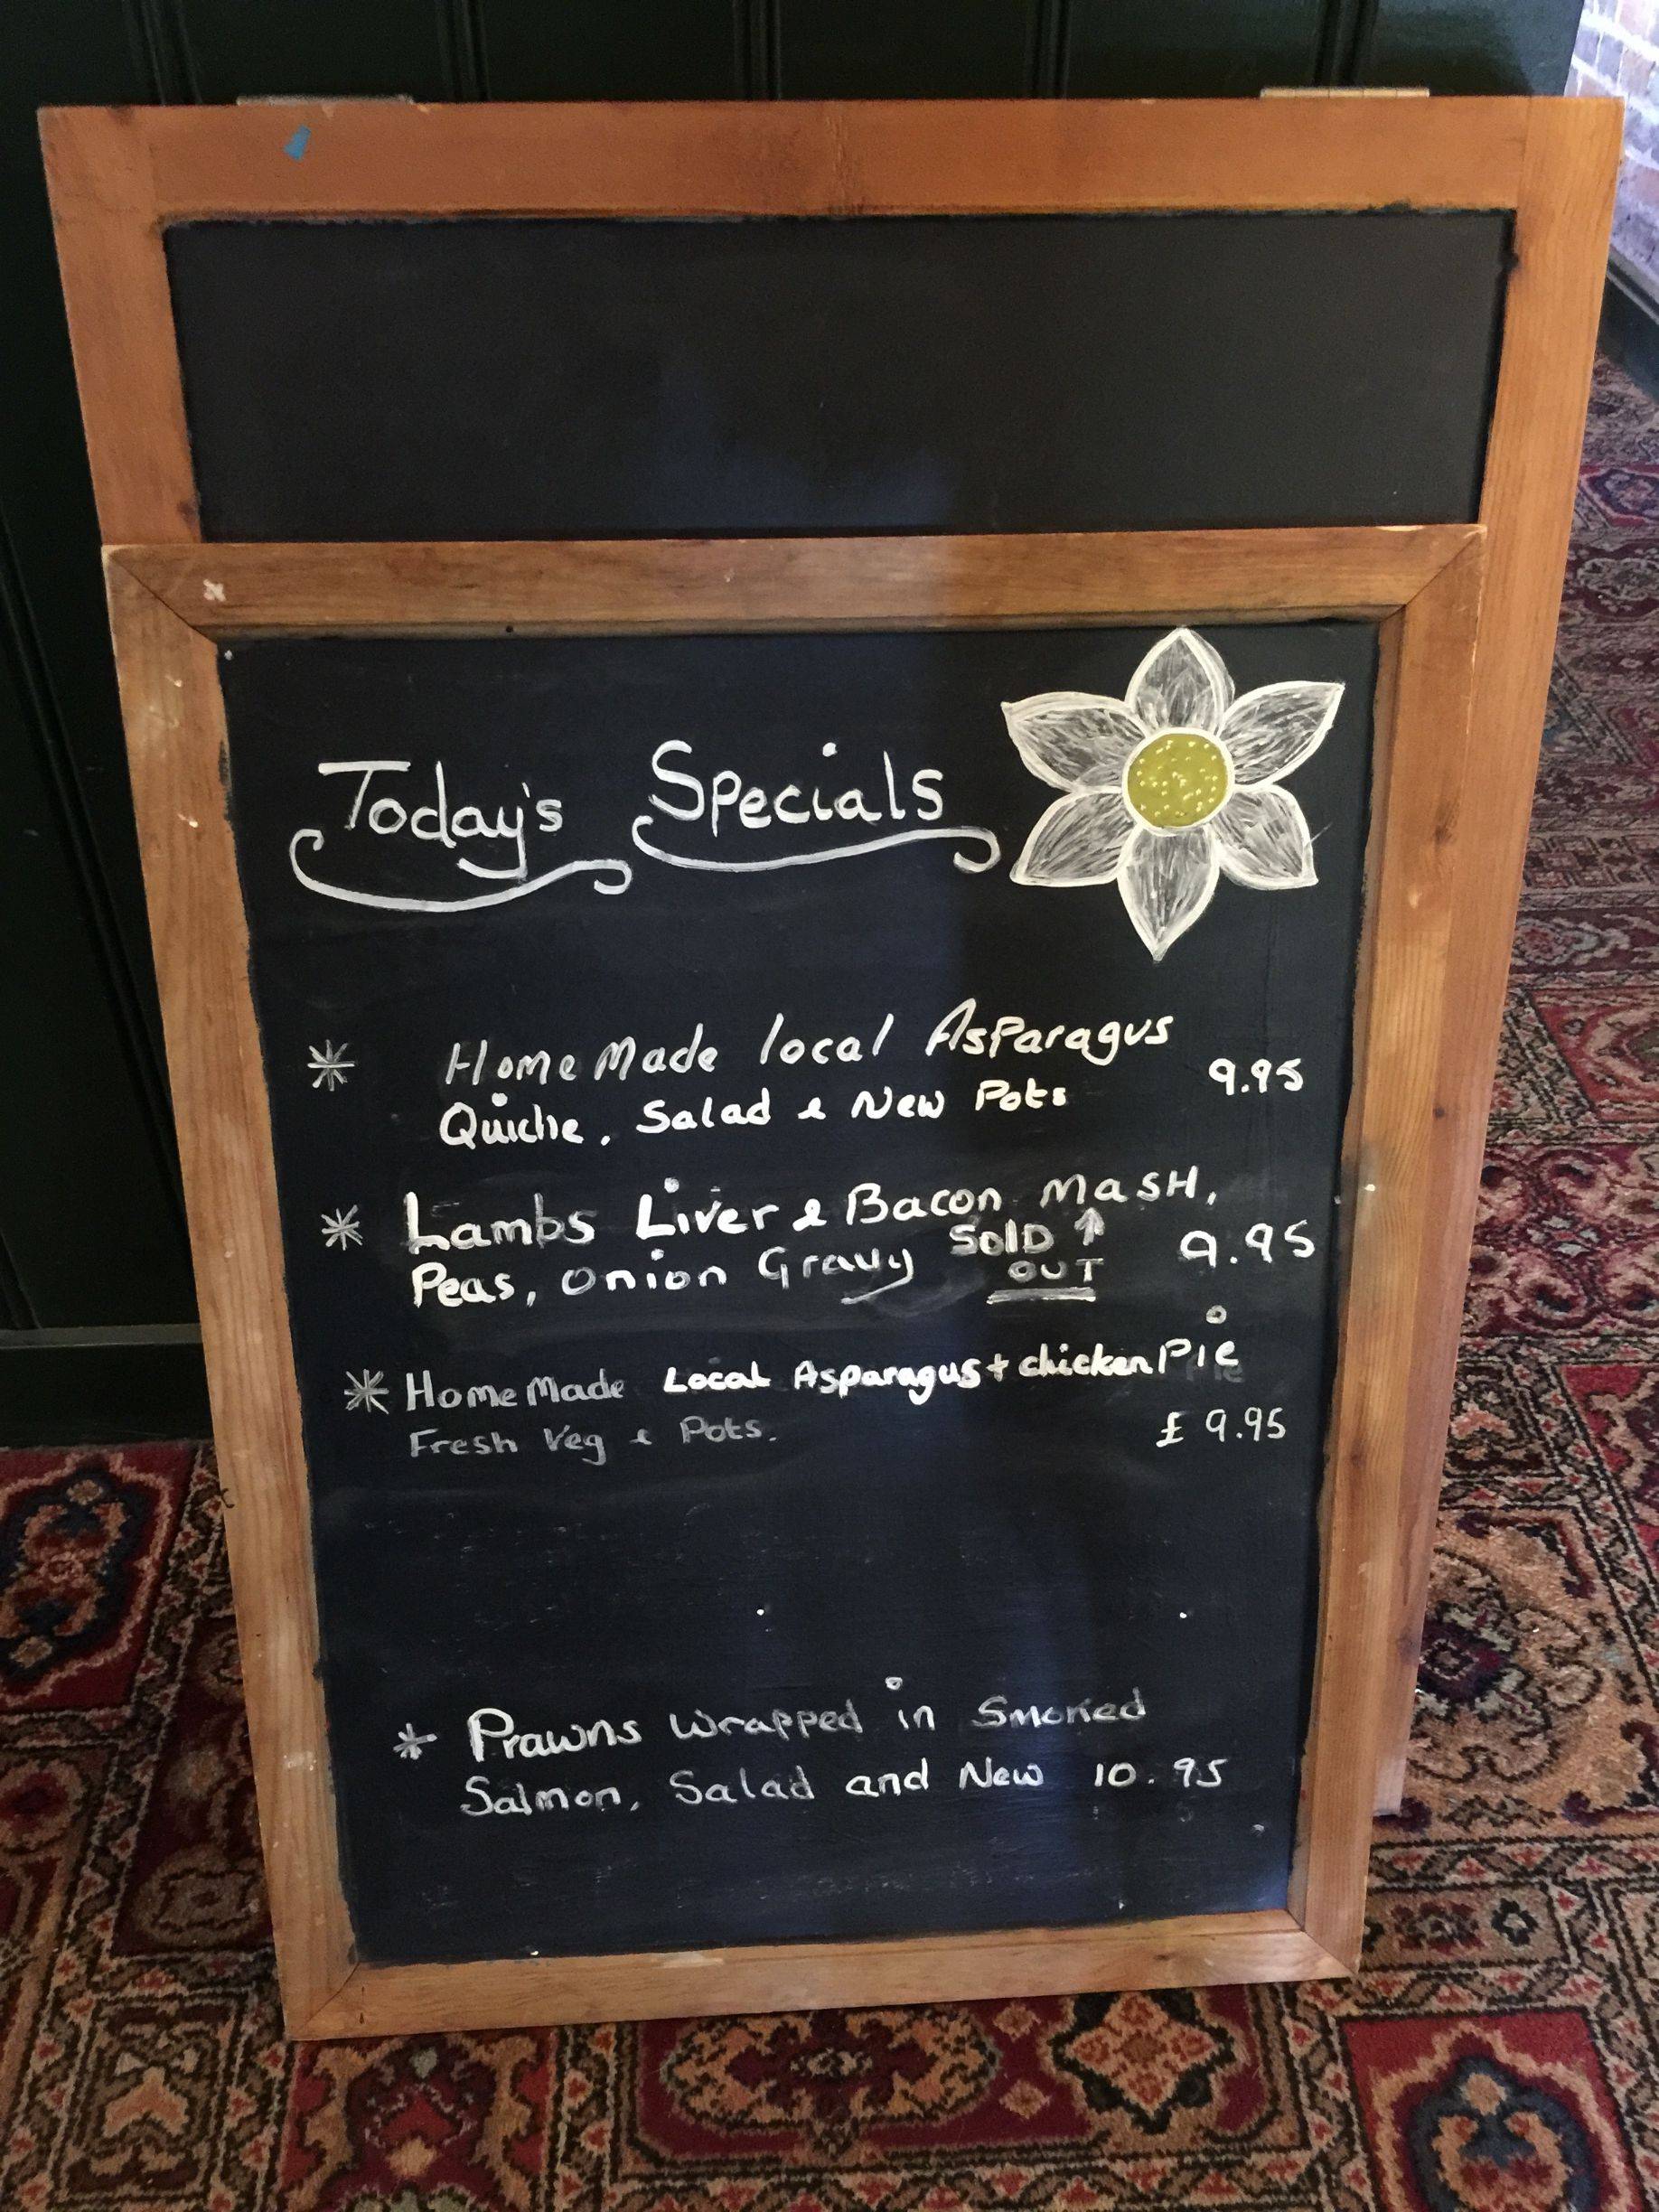 Today's Specials
* Home Made local Asparagus
Quiche, Salad & New Pots 9.95
* Lambs Liver & Bacon MASH,
Peas, onion Gravy SOLD ↑ 9.95
OUT
* Home Made Local Asparagus + chicken Pie
Fresh Veg & Pots. £ 9.95
* Prawns Wrapped in Smoked
Salmon, Salad and New 10.95